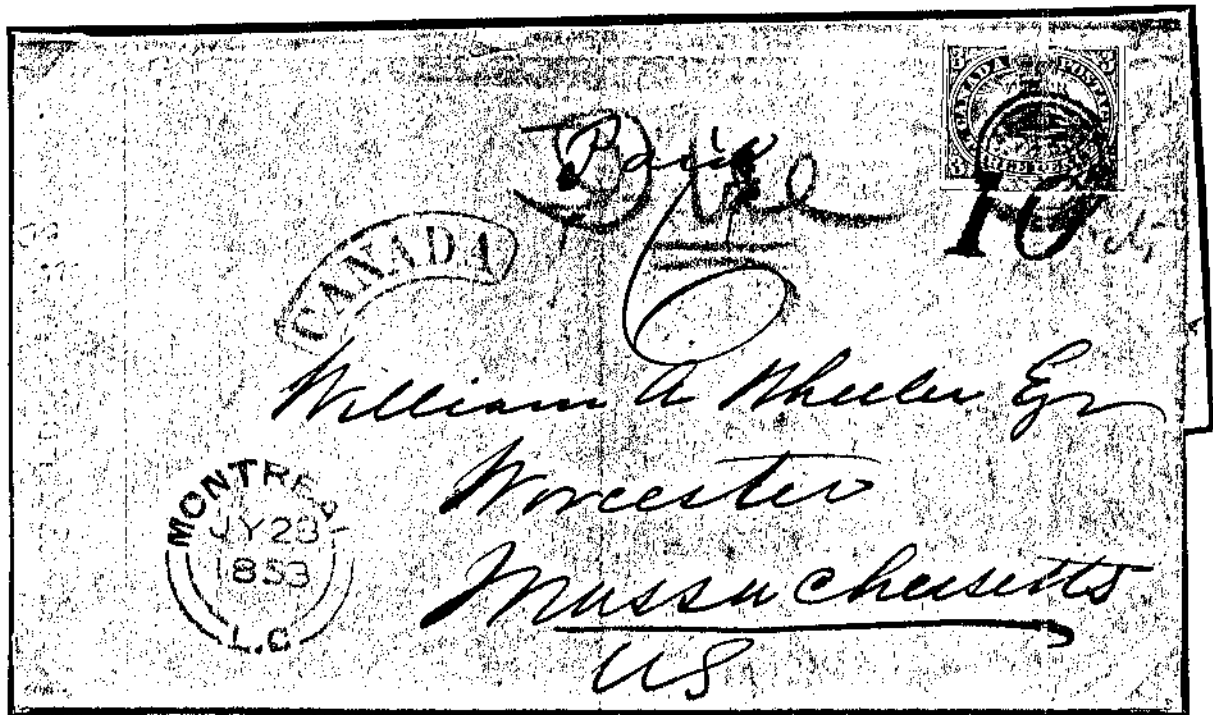 3 3
CANADA POSTAGE
3
THREE PENCE
Paid
Due
6
10
CANADA
William A Wheeler Esqr
Worcester
Massachusetts
US
MONTREAL
JY 23
1853
L.C